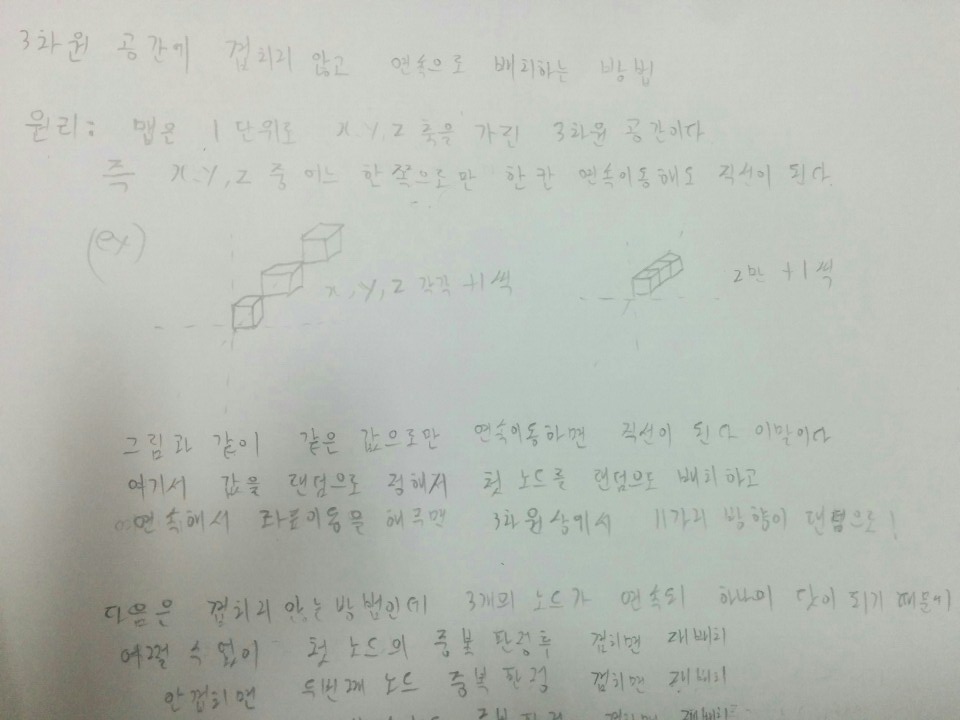 3차원 공간에 겹치지 않고 연속으로 배치하는 방법
원리: 맵은 1 단위로 x, y, z 축을 가진 3차원 공간이다
즉 x, y, z 중 어느 한 쪽으로만 한 칸 연속이동해도 직선이 된다.
(ex)
x, y, z 각각 +1씩
z만 +1씩
그림과 같이 같은 값으로만 연속이동하면 직선이 된다 이말이다
여기서 값을 랜덤으로 정해서 첫 노드를 랜덤으로 배치하고
연속해서 좌표이동을 해주면 3차원상에서 11가지 방향이 랜덤으로!
다음은 겹치지 않는 방법인데 3개의 노드가 연속되 하나의 낫이 되기 때문에
어쩔 수 없이 첫 노드의 중복 판정후 겹치면 재배치
안겹치면 두번째 노드 중복 판정 겹치면 재배치
중복 판정 겹치면 재배치